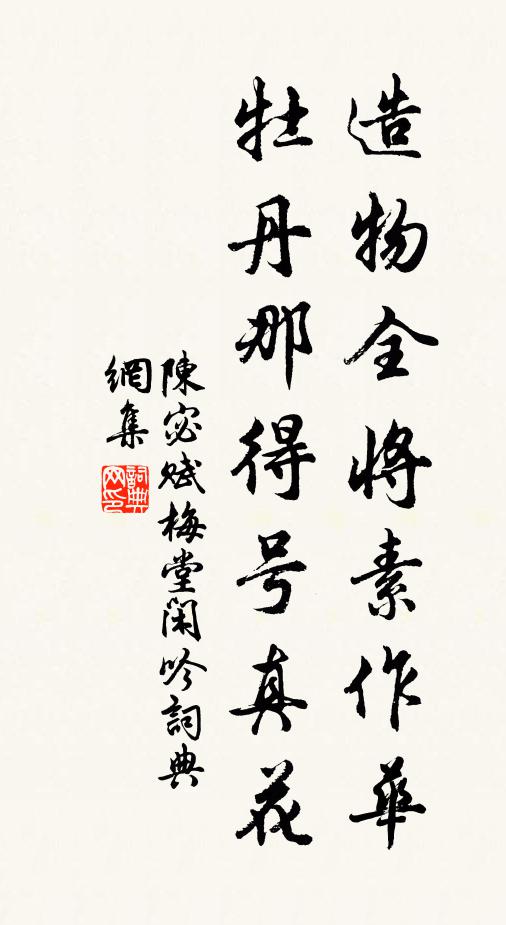 造物全將素作華
牡丹那得号真花
陳宓賦梅堂閑吟詞典
網集
詞典網印